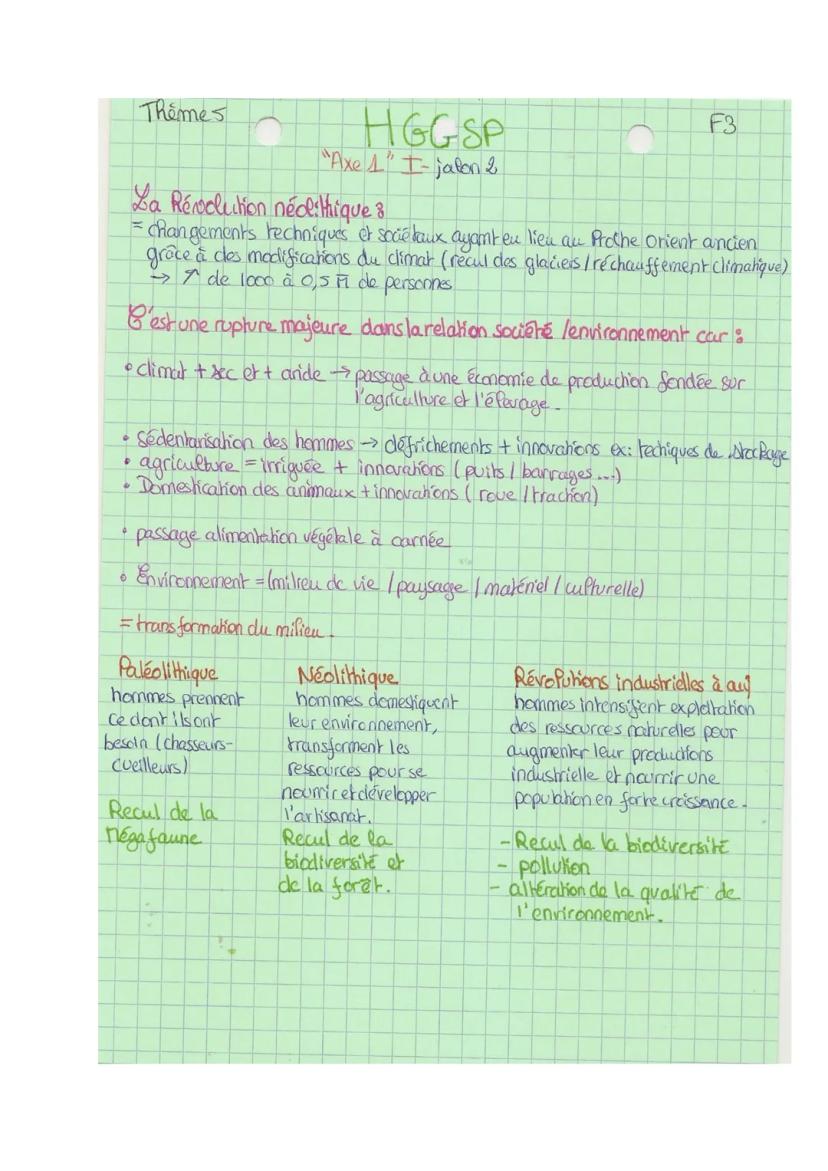 Thème 5
HGGSP
F3
"Axe 1" I- jalon 2
La Révolution néolithique :
= changements techniques et sociétaux ayant eu lieu au Proche Orient ancien
grâce à des modifications du climat (recul des glaciers / réchauffement climatique)
→ ↗ de 1000 à 0,5 M de personnes
C'est une rupture majeure dans la relation société /environnement car :
• climat + sec et + aride → passage à une économie de production fondée sur
l'agriculture et l'élevage.
• Sédentarisation des hommes → défrichements + innovations ex: techiques de stockage
• agriculture = irriguée + innovations (puits / barrages ...)
• Domestication des animaux + innovations (roue / traction)
• passage alimentation végétale à carnée
• Environnement = (milieu de vie / paysage / matériel / culturelle)
= transformation du milieu.
Paléolithique
hommes prennent
ce dont ils ont
besoin (chasseurs-
cueilleurs)
Recul de la
mégafaune
Néolithique
hommes domestiquent
leur environnement,
transforment les
ressources pour se
nourrir et développer
l'artisanat.
Recul de la
biodiversité et
de la forêt.
Révolutions industrielles à auj
hommes intensifient exploitation
des ressources naturelles pour
augmenter leur productions
industrielle et nourrir une
population en forte croissance.
- Recul de la biodiversité
- pollution
- altération de la qualité de
l'environnement.